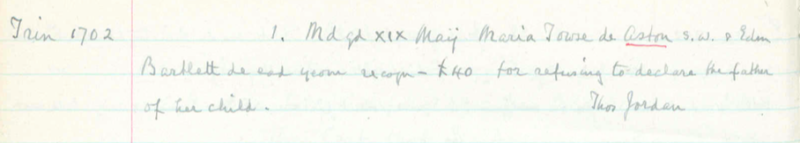 Trin 1702 1. Md qd XIX Maij Maria Towse de Aston s.w. & Eden
Bartlett de ead yeom recogn - £40 for refusing to declare the father
of her child. Thos Jordan